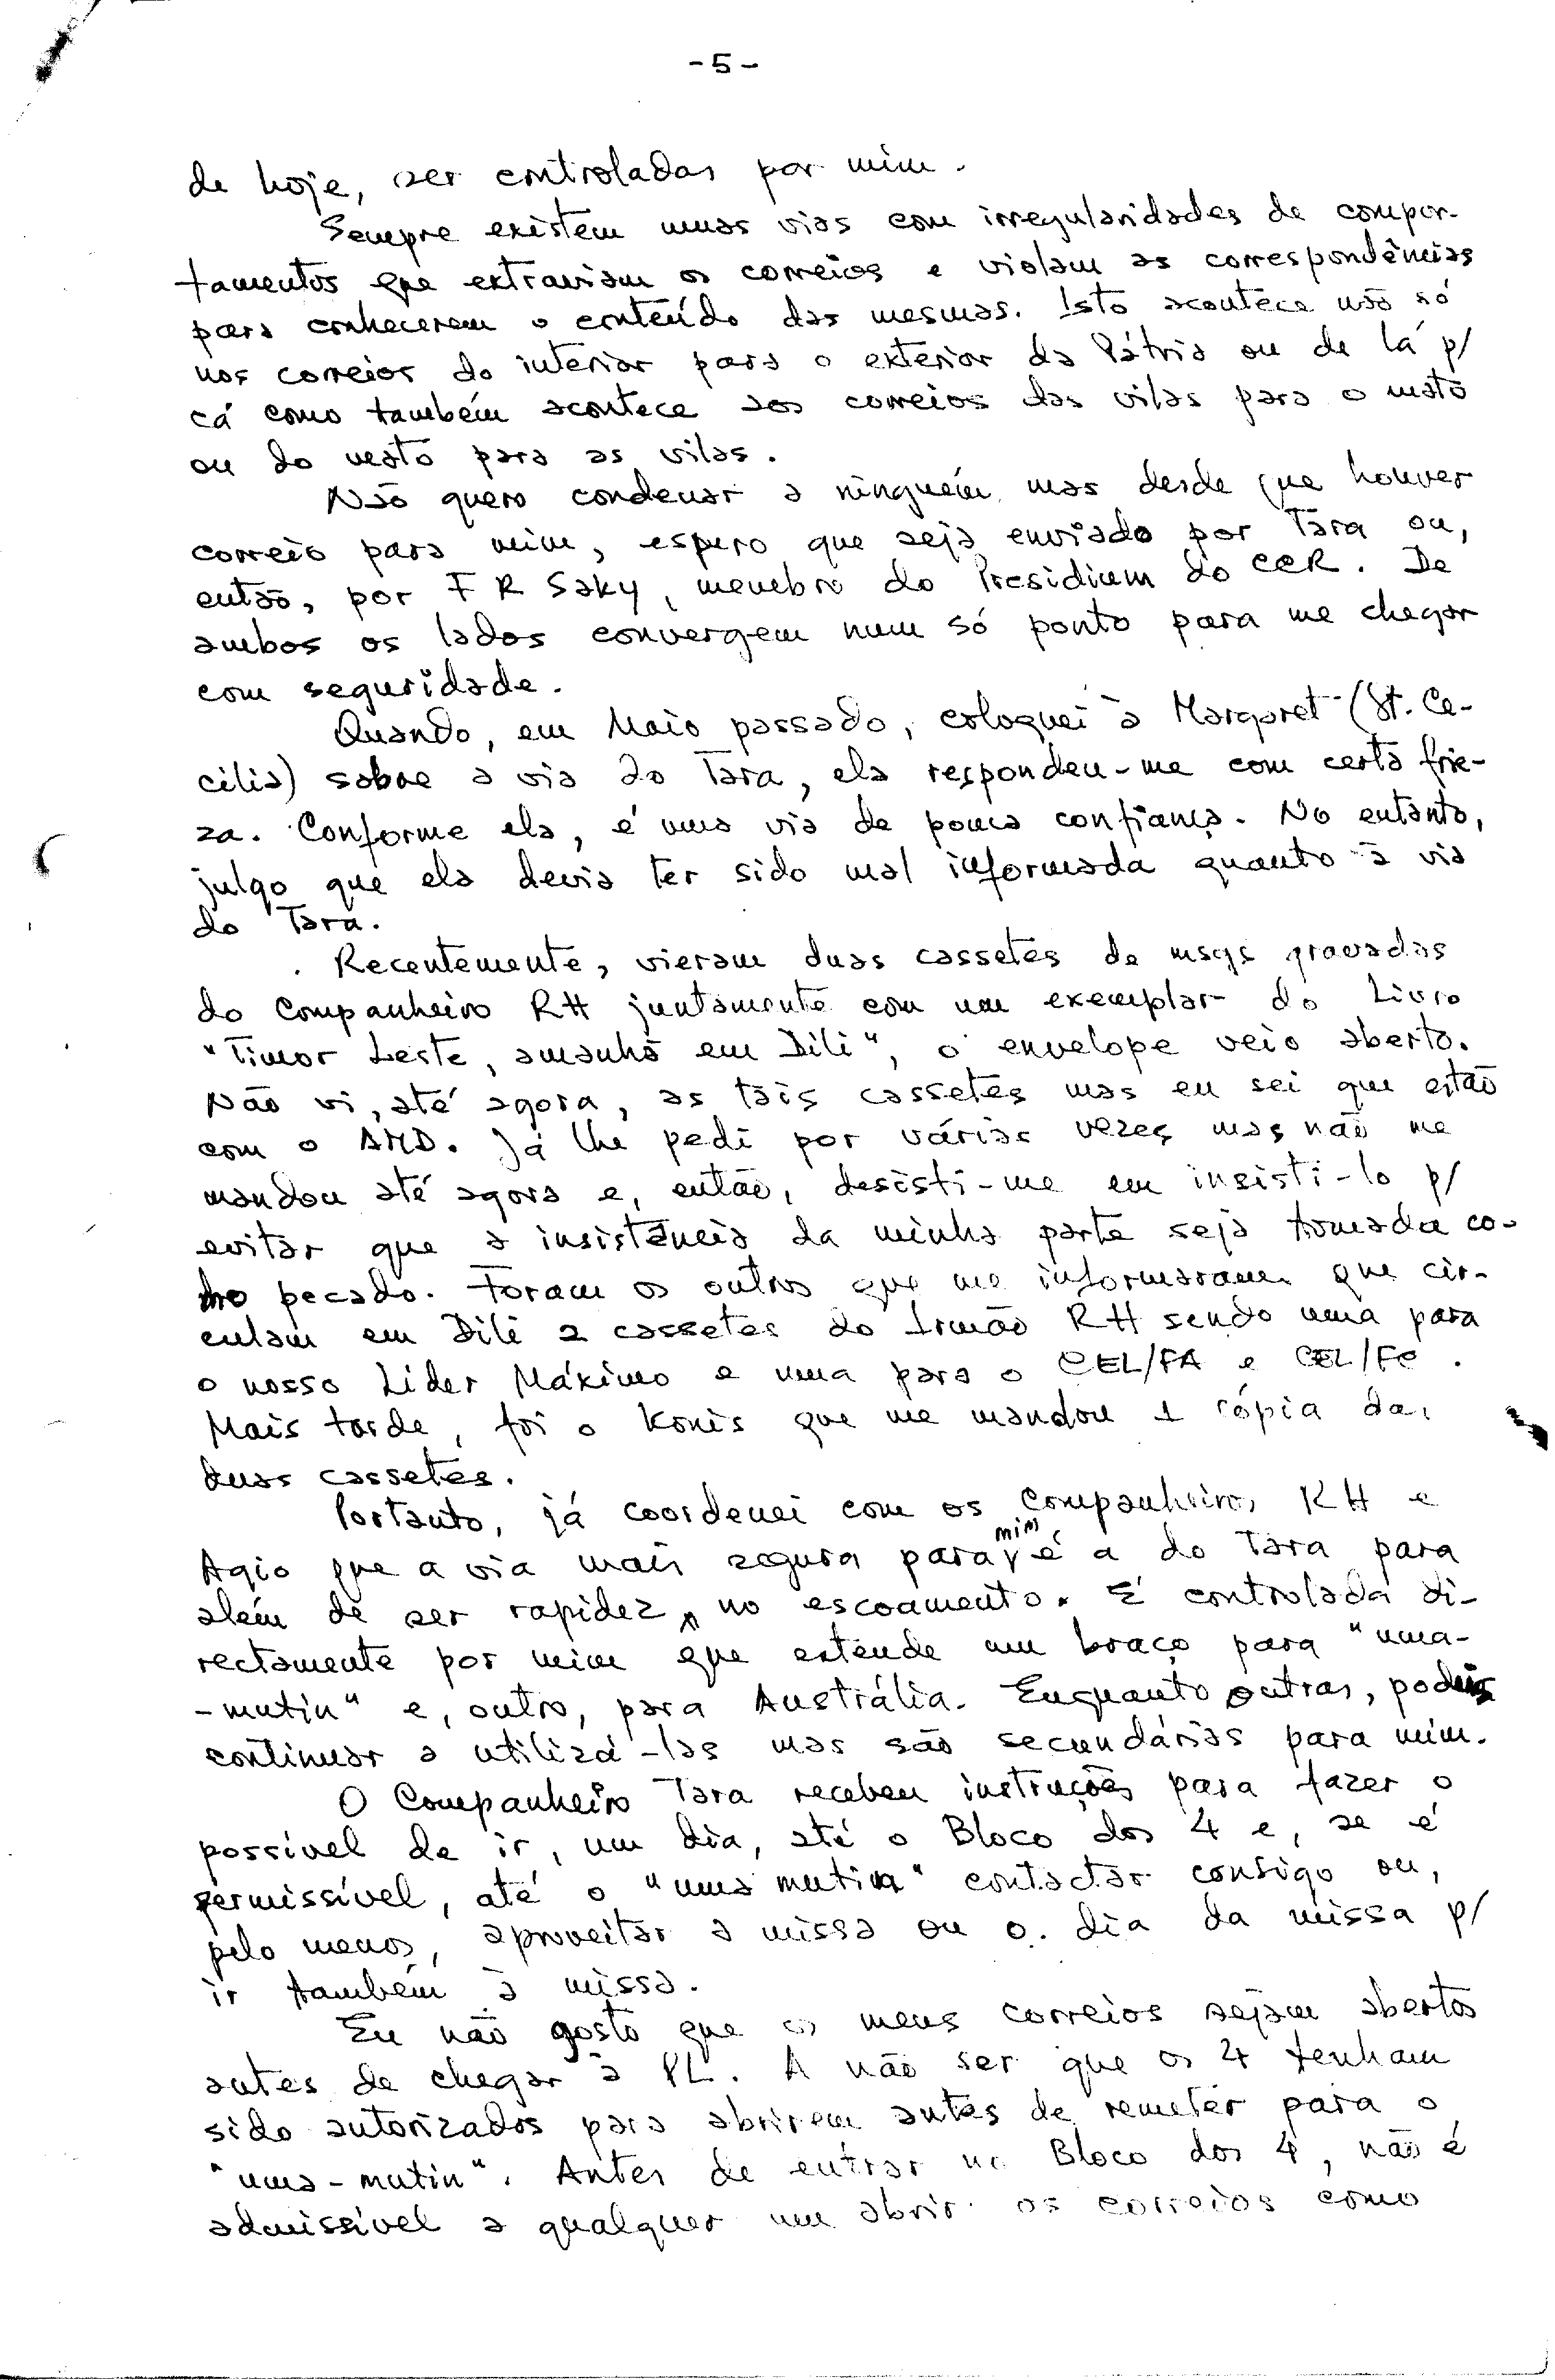 -5-
de hoje, ser controladas por mim.
Sempre existem umas vias com irregularidades de compor-
tamentos que extraviam os correios e violam as correspondências
para conhecerem o conteúdo das mesmas. Isto acontece não só
nos correios do interior para o exterior da Pátria ou de lá p/
cá como também acontece aos correios das vilas para o mato
ou do mato para as vilas.
Não quero condenar a ninguém mas desde que houver
correio para mim, espero que seja enviado por Tara ou,
então, por F R Saky, membro do Presidium do CER. De
ambos os lados convergem num só ponto para me chegar
com seguridade.
Quando, em Maio passado, coloquei à Margaret (St. Ce-
cília) sobre a via do Tara, ela respondeu-me com certa frie-
za. Conforme ela, é uma via de pouca confiança. No entanto,
julgo que ela devia ter sido mal informada quanto à via
do Tara.
Recentemente, vieram duas cassetes de msgs gravadas
do Companheiro RH juntamente com um exemplar do Livro
"Timor Leste, amanhã em Dili", o envelope veio aberto.
Não vi, até agora, as tais cassetes mas eu sei que estão
com o AMD. Já lhe pedi por várias vezes mas não me
mandou até agora e, então, desisti-me em insisti-lo p/
evitar que a insistência da minha parte seja tomada co-
mo pecado. Foram os outros que me informaram que cir-
culam em Dili 2 cassetes do Irmão RH sendo uma para
o nosso Líder Máximo e uma para o CEL/FA e CEL/FC.
Mais tarde, foi o Konis que me mandou 1 cópia das
duas cassetes.
Portanto, já coordenei com os Companheiros RH e
Agio que a via mais segura para mim é a do Tara para
além de ser rapidez no escoamento. É controlada di-
rectamente por mim que estende um braço para "uma-
-mutin" e, outro, para Austrália. Enquanto outras, podeis
continuar a utilizá-las mas são secundárias para mim.
O Companheiro Tara recebeu instruções para fazer o
possível de ir, um dia, até o Bloco dos 4 e, se é
permissível, até o "uma mutin" contactar consigo ou,
pelo menos, aproveitar a missa ou o dia da missa p/
ir também à missa.
Eu não gosto que os meus correios sejam abertos
antes de chegar à PL. A não ser que os 4 tenham
sido autorizados para abrirem antes de remeter para o
"uma-mutin". Antes de entrar no Bloco dos 4, não é
admissível a qualquer um abrir os correios como